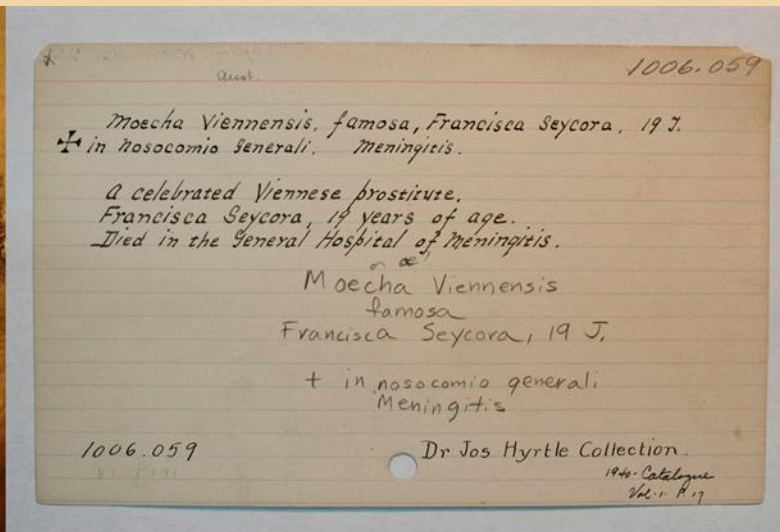 Aust.
1006.059
Moecha Viennensis, famosa, Francisca Seycora, 19 J.
✠ in Nosocomio Generali. Meningitis.
A celebrated Viennese prostitute,
Francisca Seycora, 19 years of age.
Died in the General Hospital of Meningitis.
or œ
Moecha Viennensis
famosa
Francisca Seycora, 19 J.
+ in nosocomio generali
Meningitis
1006.059
Dr Jos Hyrtle Collection.
1940-Catalogue
Vol. 1. P. 17